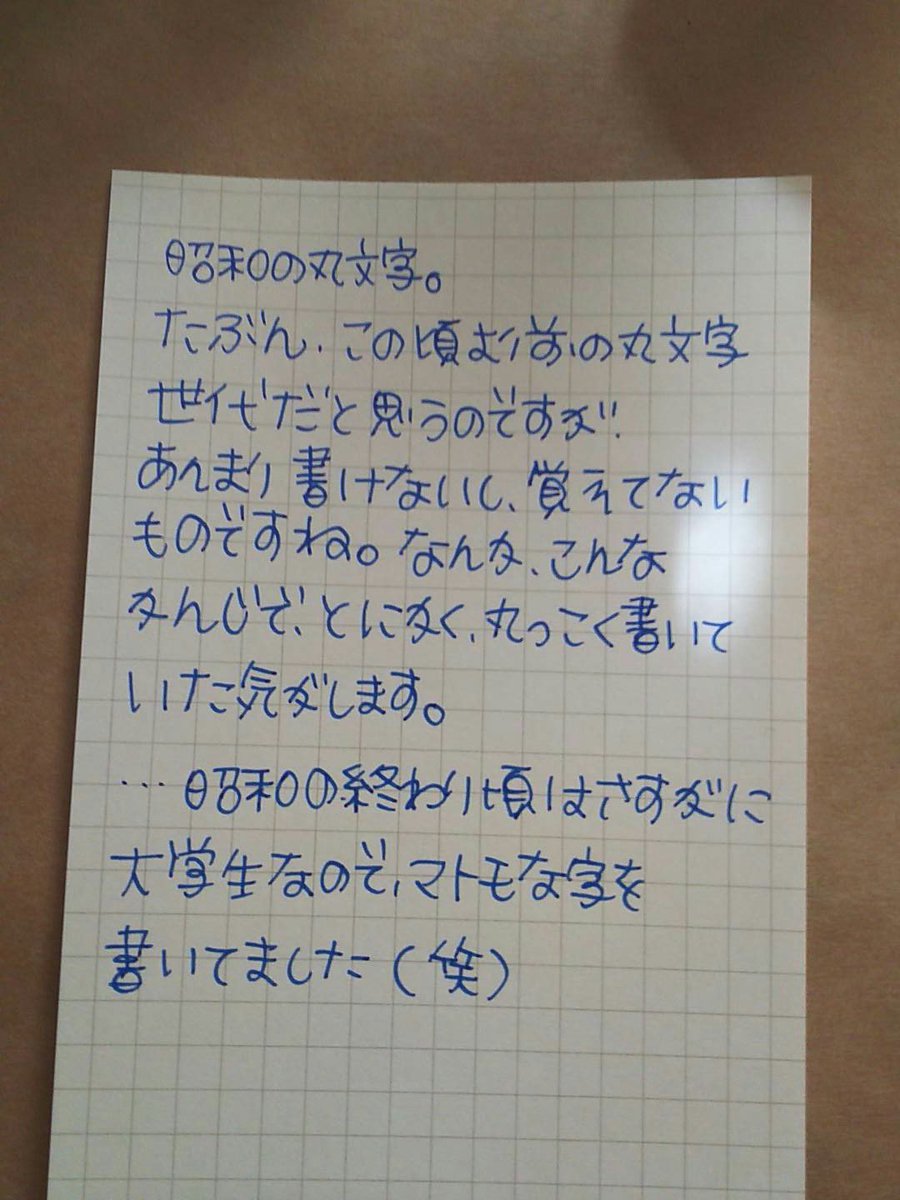 昭和の丸文字。
たぶん、この頃より前の丸文字
世代だと思うのですが、
あんまり書けないし、覚えてない
ものですね。なんか、こんな
かんじで、とにかく、丸っこく書いて
いた気がします。
…昭和の終わり頃はさすがに
大学生なので、マトモな字を
書いてました(笑)